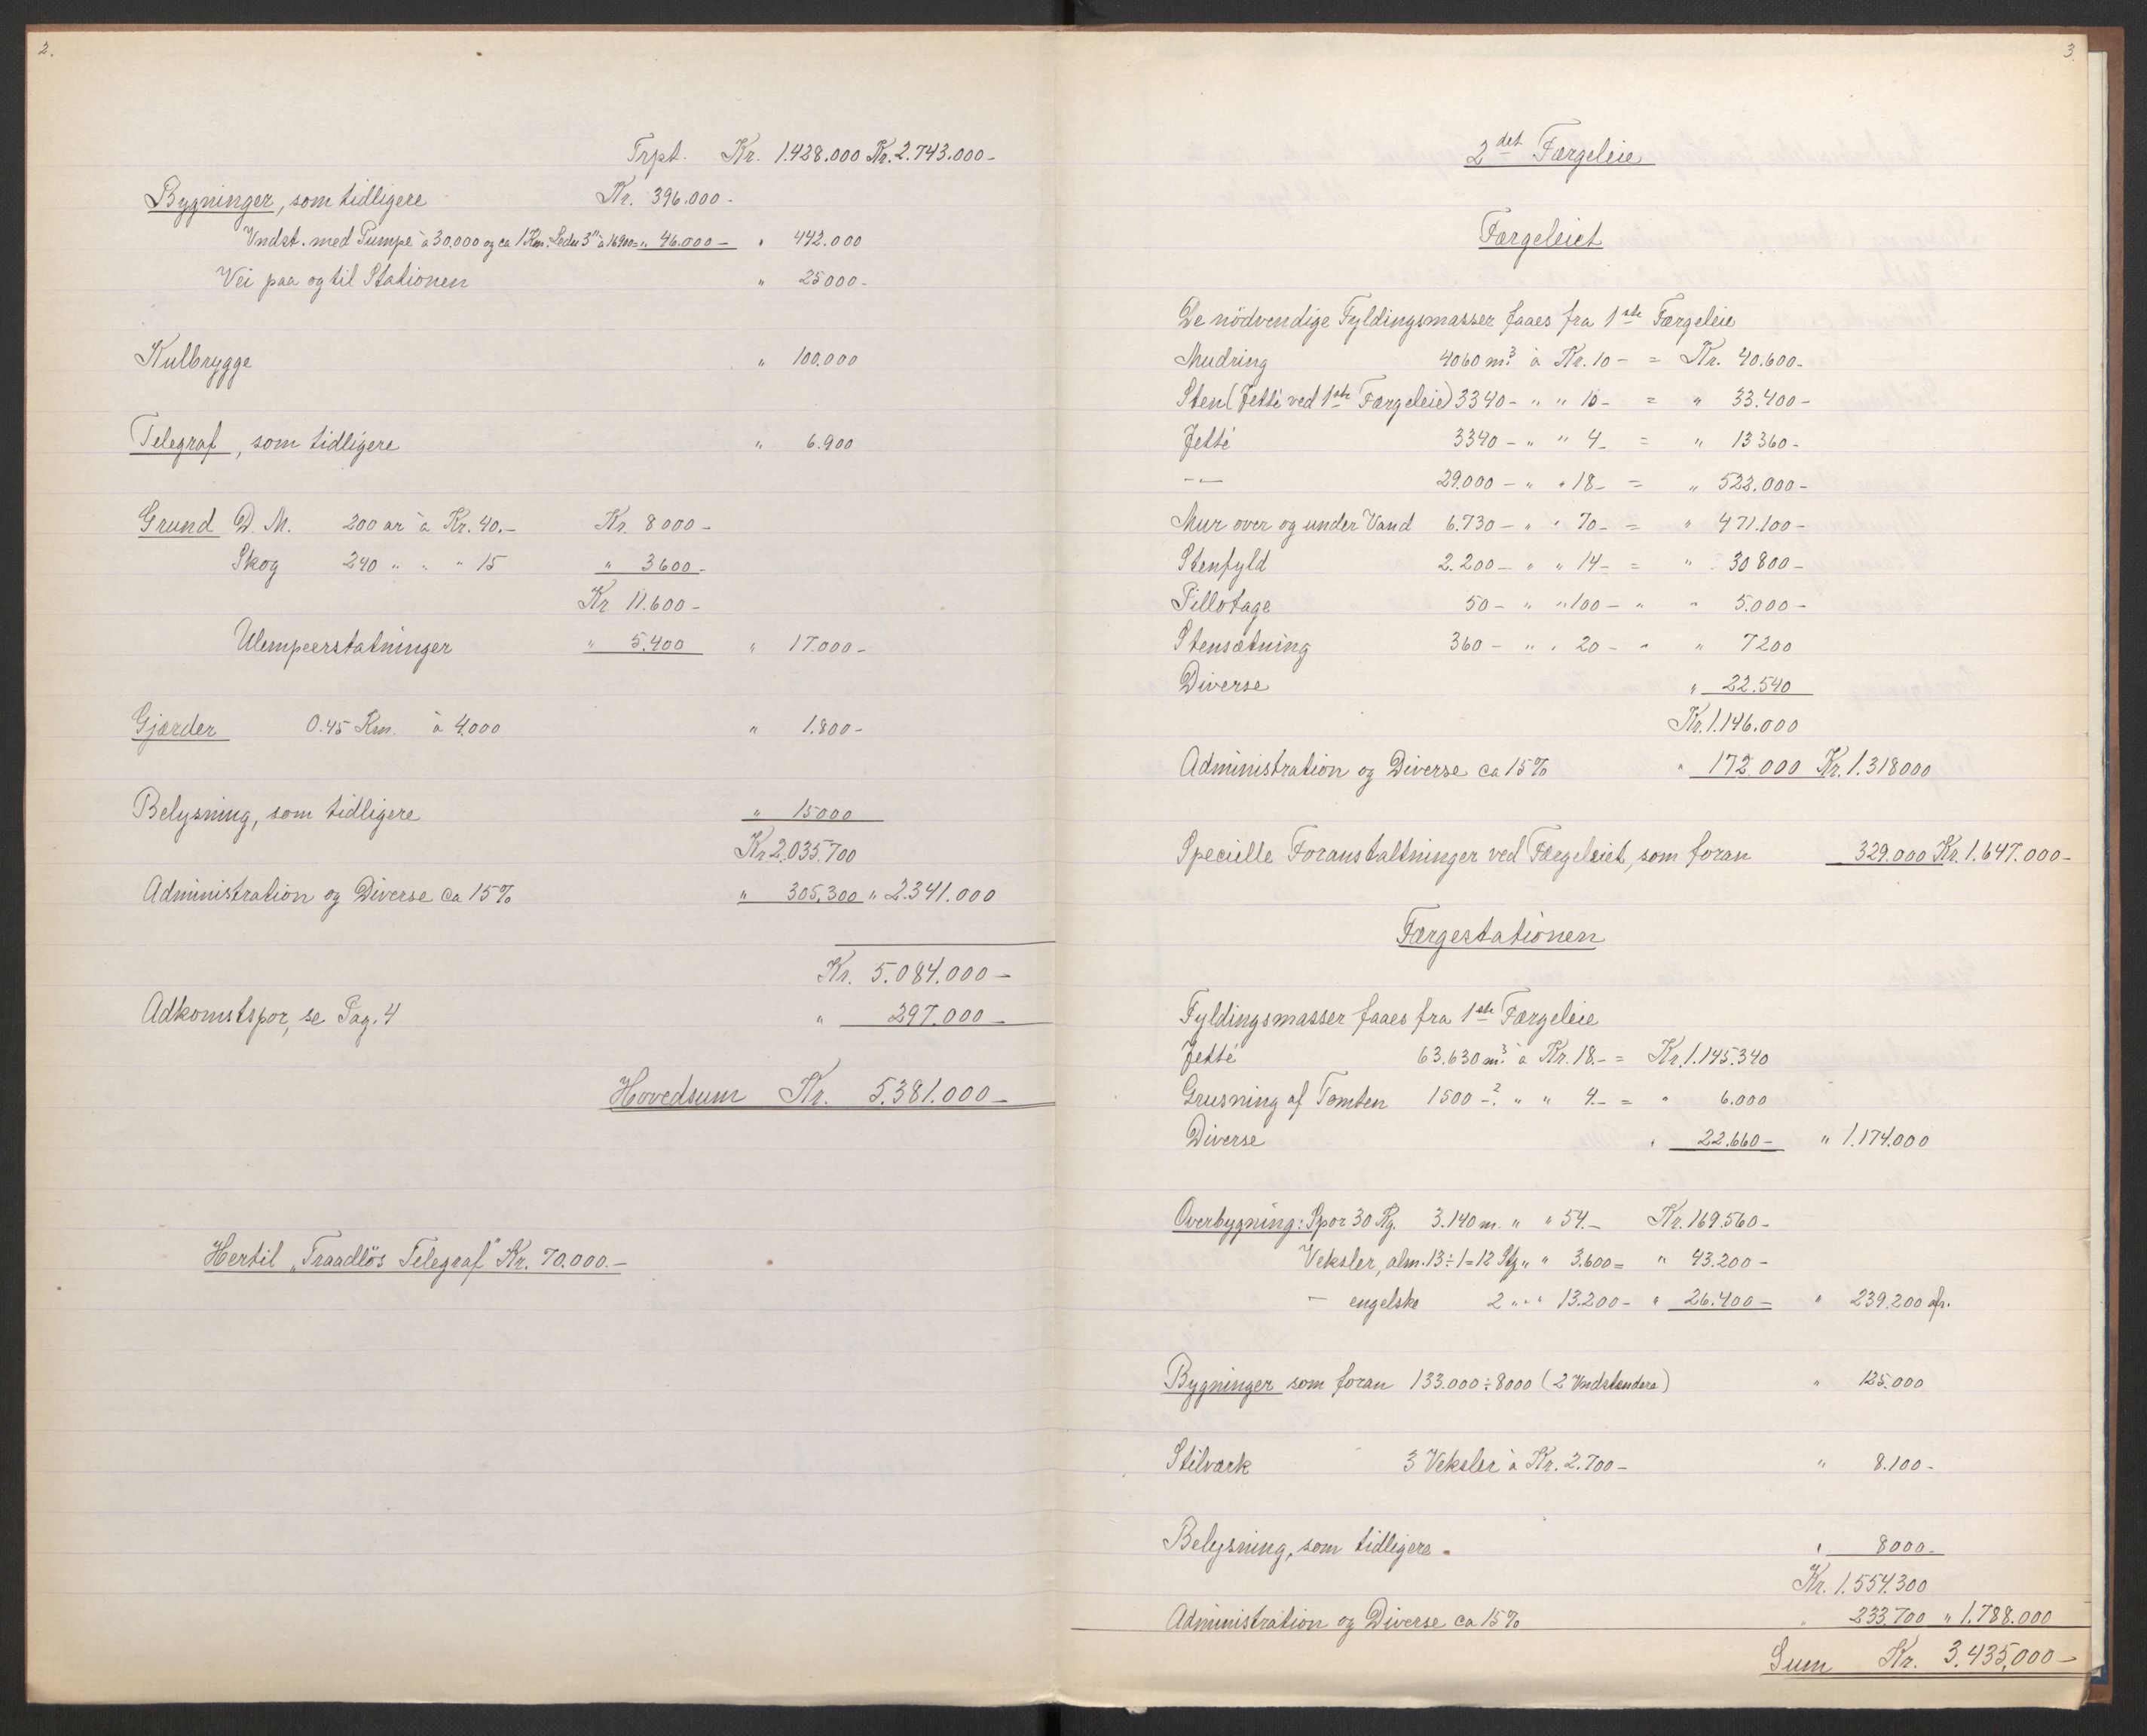 2.
Trpt. Kr. 1.428.000 Kr. 2.743.000-
Bygninger, som tidligere Kr. 396.000-
Vndst. med Pumpe à 30.000 og ca 1 Km. Ledn 3" à 16900= " 46.000- " 442.000
Vei paa og til Stationen " 25000-
Kulbrygge " 100.000
Telegraf, som tidligere " 6.900
Grund D. M. 200 ar à Kr. 40.- Kr. 8000-
Skog 240 " " " 15 " 3600-
Kr. 11.600-
Ulempeerstatninger " 5.400 " 17.000-
Gjærder 0.45 Km. à 4.000 " 1.800-
Belysning, som tidligere " 15000
Kr. 2.035.700
Administration og Diverse ca 15% " 305,300 " 2.341.000
Kr. 5.084.000-
Adkomstspor, se Pag. 4 " 297.000-
Hovedsum Kr. 5.381.000-
Hertil „Traadlös Telegraf" Kr. 70.000.-
3.
2det Færgeleie
Færgeleiet
De nödvendige Fyldingsmasser faaes fra 1ste Færgeleie
Mudring 4060 m.³ à Kr. 10- = Kr. 40.600-
Sten (Jetté ved 1ste Færgeleie) 3340- " " 10- = " 33.400-
Jetté 3340- " " 4- = " 13360-
-"- 29.000- " " 18- = " 522.000-
Mur over og under Vand 6.730- " " 70- = " 471.100-
Stenfyld 2.200- " " 14- = " 30800-
Pillotage 50- " " 100- " " 5.000-
Stensætning 360- " " 20- " " 7200
Diverse " 22.540
Kr. 1.146.000
Administration og Diverse ca 15% " 172.000 Kr. 1.318000
Specielle Foranstaltninger ved Færgeleiet, som foran 329.000 Kr. 1.647.000-
Færgestationen
Fyldingsmasser faaes fra 1ste Færgeleie
Jetté 63.630 m.³ à Kr. 18.- = Kr. 1.145.340
Grusning af Tomten 1500 -² " " 4.- = " 6.000
Diverse " 22.660- " 1.174.000
Overbygning: Spor 30 Kg. 3.140 m. " " 54.- Kr. 169.560-
Veksler, alm. 13÷1=12 Stg " " 3.600= " 43.200-
- engelske 2 " " " 13.200- " 26.400- " 239.200 afr.
Bygninger som foran 133.000÷8000 (2 Vndstendere) " 125.000
Stilværk 3 Veksler à Kr. 2.700- " 8.100-
Belysning, som tidligere " 8000-
Kr. 1.554.300
Administration og Diverse ca 15% " 233.700 " 1.788.000
Sum Kr. 3.435,000-